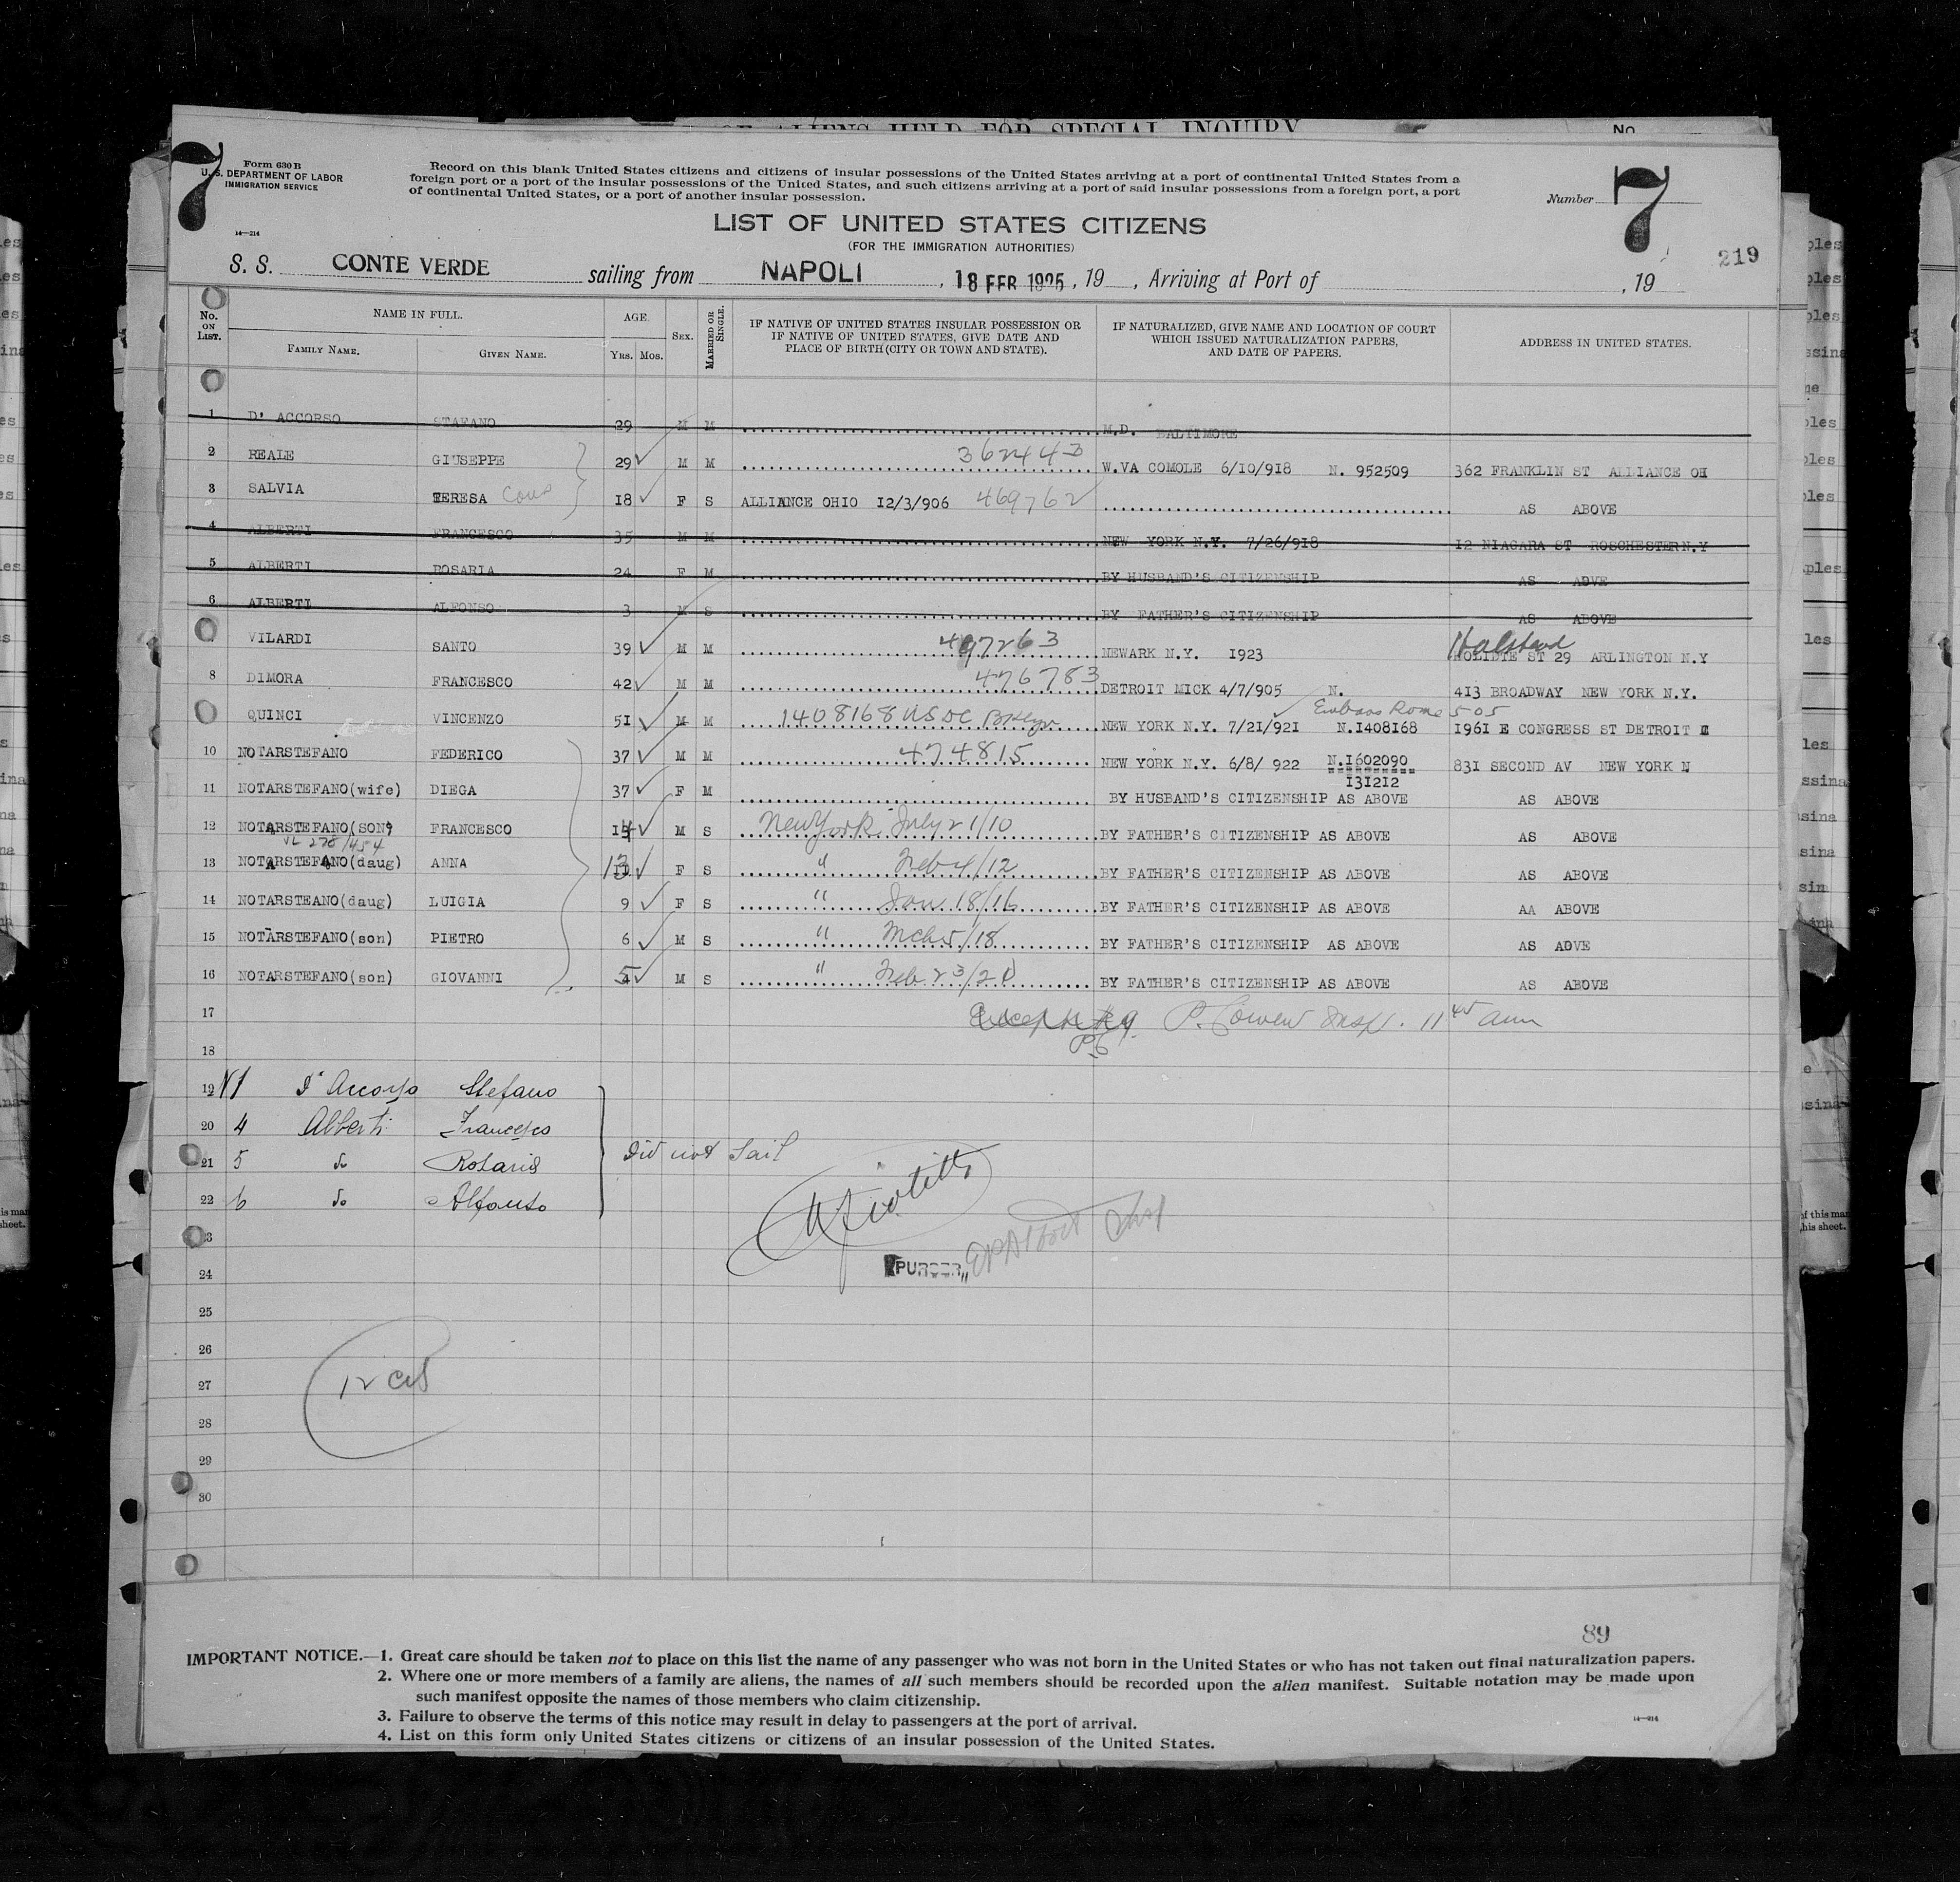 OF ALIENS HELD FOR SPECIAL INQUIRY
No.
7
Form 630 B
U. S. DEPARTMENT OF LABOR
IMMIGRATION SERVICE
14—214
Record on this blank United States citizens and citizens of insular possessions of the United States arriving at a port of continental United States from a
foreign port or a port of the insular possessions of the United States, and such citizens arriving at a port of said insular possessions from a foreign port, a port
of continental United States, or a port of another insular possession.
Number 7
LIST OF UNITED STATES CITIZENS
(FOR THE IMMIGRATION AUTHORITIES)
219
S. S. CONTE VERDE sailing from NAPOLI, 18 FEB 1925, 19 , Arriving at Port of , 19
No. ON LIST. NAME IN FULL. FAMILY NAME. GIVEN NAME. AGE. Yrs. Mos. SEX. MARRIED OR SINGLE. IF NATIVE OF UNITED STATES INSULAR POSSESSION OR IF NATIVE OF UNITED STATES, GIVE DATE AND PLACE OF BIRTH (CITY OR TOWN AND STATE). IF NATURALIZED, GIVE NAME AND LOCATION OF COURT WHICH ISSUED NATURALIZATION PAPERS, AND DATE OF PAPERS. ADDRESS IN UNITED STATES.
1 D' ACCORSO STAFANO 29 M M M.D. BALTIMORE
2 REALE GIUSEPPE 29 M M 362443 W.VA COMOLE 6/10/918 N. 952509 362 FRANKLIN ST ALLIANCE OH
3 SALVIA TERESA Cous 18 F S ALLIANCE OHIO 12/3/906 469762 AS ABOVE
4 ALBERTI FRANCESCO 35 M M NEW YORK N.Y. 7/26/918 12 NIAGARA ST ROSCHESTER N.Y
5 ALBERTI ROSARIA 24 F M BY HUSBAND'S CITIZENSHIP AS ADVE
6 ALBERTI ALFONSO 3 M S BY FATHER'S CITIZENSHIP AS ABOVE
VILARDI SANTO 39 M M 497263 NEWARK N.Y. 1923 Halstead ST 29 ARLINGTON N.Y
8 DIMORA FRANCESCO 42 M M 476783 DETROIT MICK 4/7/905 N. 413 BROADWAY NEW YORK N.Y.
Embass Rome 505
QUINCI VINCENZO 51 M M 1408168 US DC Bklyn NEW YORK N.Y. 7/21/921 N.1408168 1961 E CONGRESS ST DETROIT
10 NOTARSTEFANO FEDERICO 37 M M 474815 NEW YORK N.Y. 6/8/ 922 N.1602090 831 SECOND AV NEW YORK N
131212
11 NOTARSTEFANO(wife) DIEGA 37 F M BY HUSBAND'S CITIZENSHIP AS ABOVE AS ABOVE
12 NOTARSTEFANO(SON) FRANCESCO 14 M S New York July 21/10 BY FATHER'S CITIZENSHIP AS ABOVE AS ABOVE
VL 278/454
13 NOTARSTEFANO(daug) ANNA 13 F S " Feb 4/12 BY FATHER'S CITIZENSHIP AS ABOVE AS ABOVE
14 NOTARSTEANO(daug) LUIGIA 9 F S " Jan 18/16 BY FATHER'S CITIZENSHIP AS ABOVE AA ABOVE
15 NOTARSTEFANO(son) PIETRO 6 M S " Mch 5/18 BY FATHER'S CITIZENSHIP AS ABOVE AS ADVE
16 NOTARSTEFANO(son) GIOVANNI 5 M S " Feb 23/20 BY FATHER'S CITIZENSHIP AS ABOVE AS ABOVE
17 P. Cowen Insp. 11 45 am
18
19 1 D'Accorso Stefano
20 4 Alberti Francesco
21 5 do Rosaria
Did not sail
22 6 do Alfonso
23
24 PURSER
25
26
27
12 cit
28
29
30
89
IMPORTANT NOTICE.—1. Great care should be taken not to place on this list the name of any passenger who was not born in the United States or who has not taken out final naturalization papers.
2. Where one or more members of a family are aliens, the names of all such members should be recorded upon the alien manifest. Suitable notation may be made upon
such manifest opposite the names of those members who claim citizenship.
3. Failure to observe the terms of this notice may result in delay to passengers at the port of arrival.
4. List on this form only United States citizens or citizens of an insular possession of the United States.
14—214